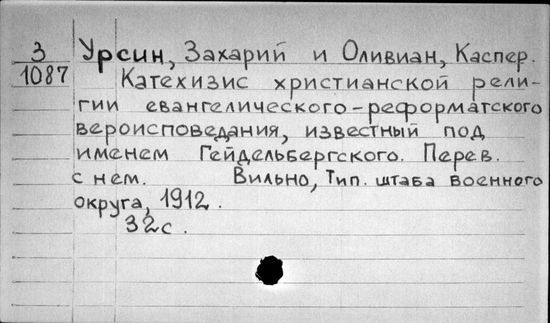 3 Урсин, Захарий и Оливиан, Каспер.
1087 Катехизис христианской рели-
гии евангелического-реформатского
вероисповедания, известный под
именем Гейдельбергского. Перев.
с нем. Вильно, Тип. штаба военного
округа, 1912.
32с.